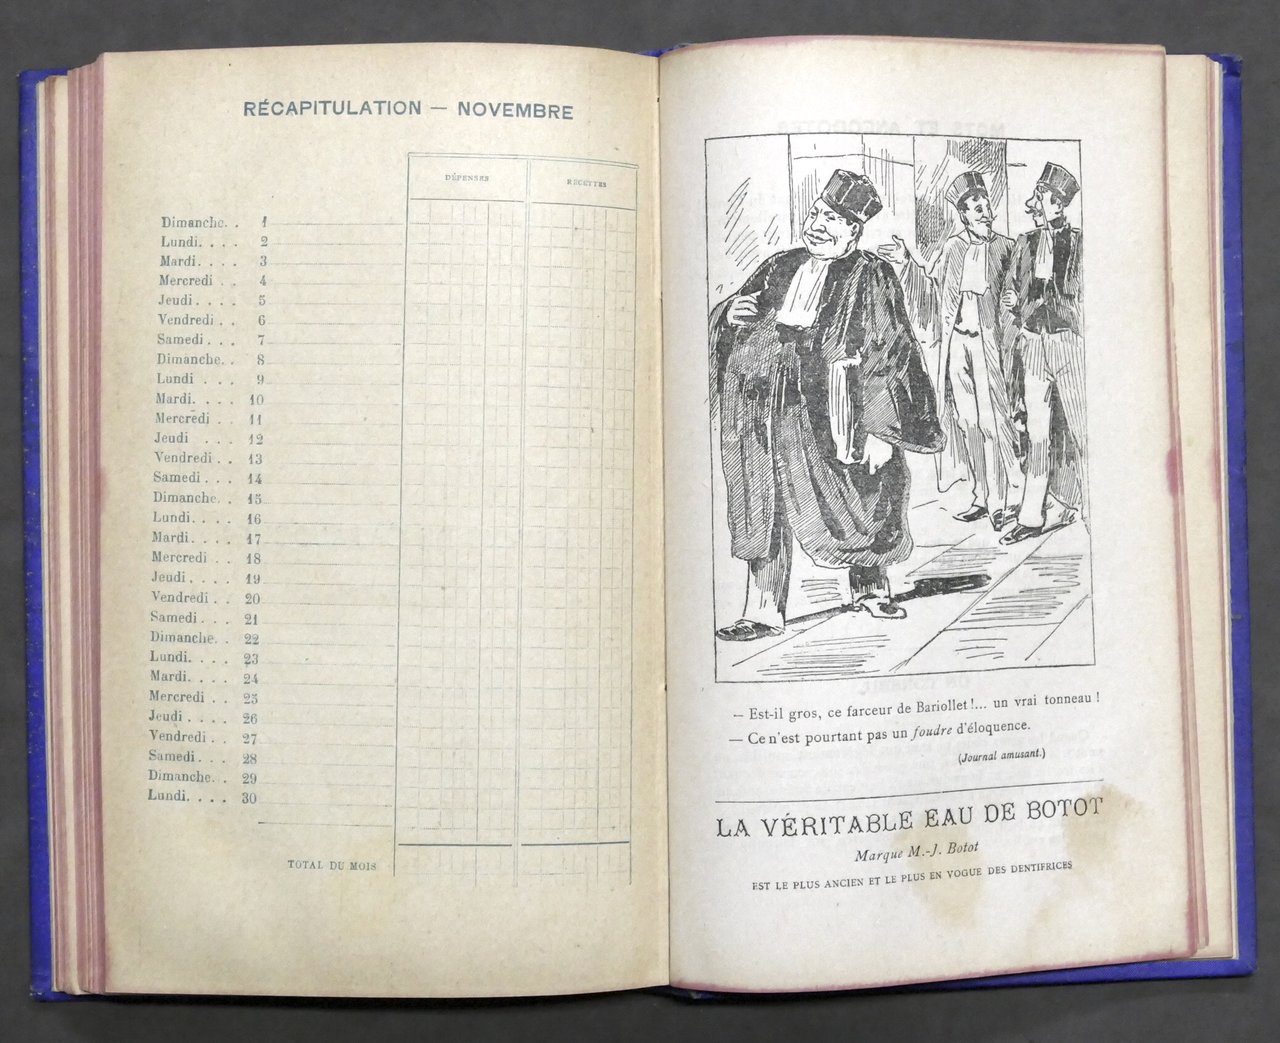 RÉCAPITULATION — NOVEMBRE
DÉPENSES RECETTES
Dimanche. . 1
Lundi. . . . 2
Mardi. . . . 3
Mercredi . . 4
Jeudi . . . . 5
Vendredi . . 6
Samedi . . . 7
Dimanche. . 8
Lundi . . . 9
Mardi. . . . 10
Mercredi . . 11
Jeudi . . . 12
Vendredi . . 13
Samedi . . . 14
Dimanche. . 15
Lundi. . . . 16
Mardi. . . . 17
Mercredi . . 18
Jeudi . . . . 19
Vendredi . . 20
Samedi . . . 21
Dimanche. . 22
Lundi. . . . 23
Mardi. . . . 24
Mercredi . . 25
Jeudi . . . . 26
Vendredi . . 27
Samedi . . . 28
Dimanche. . 29
Lundi. . . . 30
TOTAL DU MOIS
— Est-il gros, ce farceur de Bariollet !... un vrai tonneau !
— Ce n'est pourtant pas un foudre d'éloquence.
(Journal amusant.)
LA VÉRITABLE EAU DE BOTOT
Marque M.-J. Botot
EST LE PLUS ANCIEN ET LE PLUS EN VOGUE DES DENTIFRICES